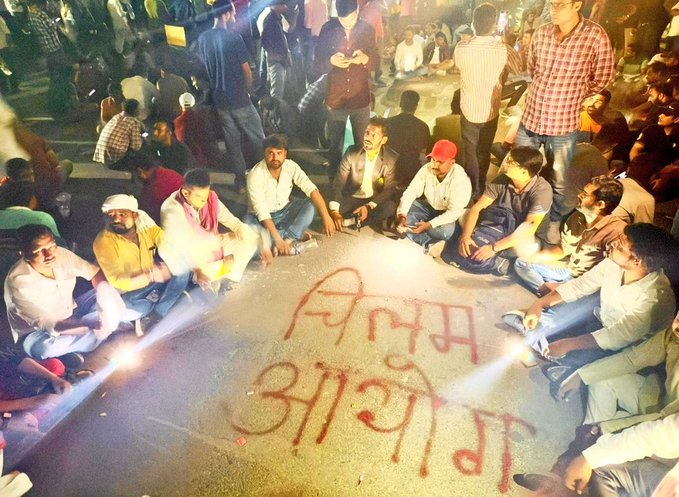 चिलम
आयोग